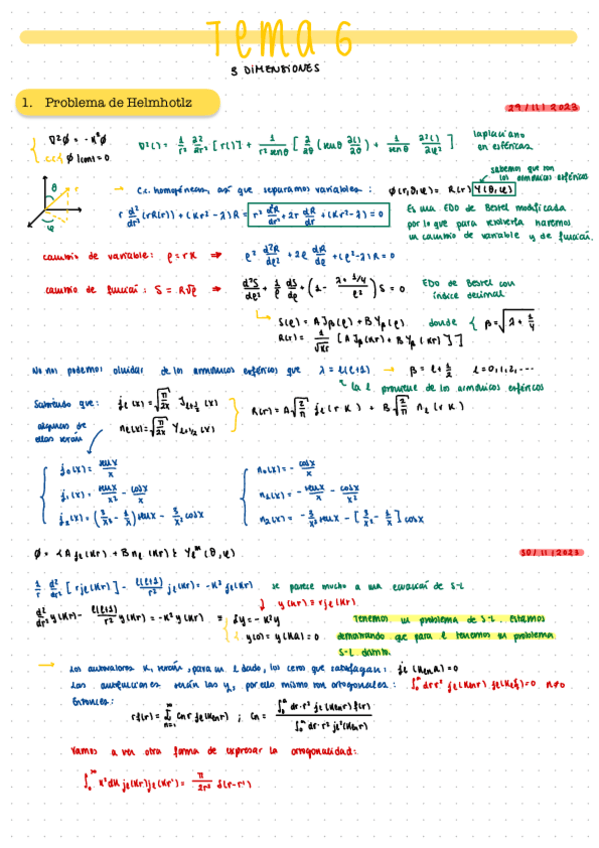 Tema 6
3 DIMENSIONES
1. Problema de Helmhotlz
29/11/2023
∇²φ = -K²φ
c.c. φ|cont = 0
∇²() = 1/r² ∂²/∂r² [r()] + 1/(r² senθ) [∂/∂θ (senθ ∂()/∂θ) + 1/senθ ∂²()/∂φ²]
laplaciano en esféricas
sabemos que son los armónicos esféricos
→ C.c. homogéneas, así que separamos variables: φ(r,θ,φ) = R(r) Y(θ,φ)
r d²/dr² (rR(r)) + (Kr² - λ)R = r² d²R/dr² + 2r dR/dr + (Kr² - λ) = 0
Es una EDO de Bessel modificada
por lo que para resolverla haremos
un cambio de variable y de función.
cambio de variable: ρ = rK ⇒ ρ² d²R/dρ² + 2ρ dR/dρ + (ρ² - λ)R = 0
cambio de función: S = R√ρ ⇒ d²S/dρ² + 1/ρ dS/dρ + (1 - (λ + 1/4)/ρ²) S = 0
EDO de Bessel con índice decimal
S(ρ) = A Jβ(ρ) + B Yβ(ρ) donde { β = √(λ + 1/4)
R(r) = 1/√Kr [A Jβ(Kr) + B Yβ(Kr)]
No nos podemos olvidar de los armónicos esféricos que λ = l(l+1) → β = l + 1/2 l = 0,1,2,...
la l proviene de los armónicos esféricos
Sabiendo que: jl(x) = √(π/2x) Jl+1/2(x)
nl(x) = √(π/2x) Yl+1/2(x)
R(r) = A√(2/π) jl(rK) + B√(2/π) nl(rK)
algunas de ellas serán
j0(x) = senx/x
j1(x) = senx/x² - cosx/x
j2(x) = (3/x³ - 1/x) senx - 3/x² cosx
n0(x) = - cosx/x
n1(x) = - senx/x - cosx/x²
n2(x) = - 3/x² senx - [3/x³ - 1/x] cosx
φ = {A jl(Kr) + B nl(Kr)} Yl^m(θ,φ)
30/11/2023
1/r d²/dr² [r jl(Kr)] - l(l+1)/r² jl(Kr) = -K² jl(Kr) se parece mucho a una ecuación de S-L
↓ y(Kr) ≡ r jl(Kr)
d²/dr² y(Kr) - l(l+1)/r² y(Kr) = -K² y(Kr) = { Ly = -K²y
y(0) = y(Ka) = 0
Tenemos un problema de S-L. Estamos
demostrando que para l tenemos un problema
S-L distinto.
→ Los autovalores K, serán, para un l dado, los ceros que satisfagan: jl(Kln a) = 0
Las autofunciones serán las y, por ello mismo son ortogonales: ∫0^a dr r² jl(Klnr) jl(Klqr) = 0 n≠0
Entonces:
rf(r) = Σ n=1 ∞ Cn r jl(Klnr) ; Cn = ∫0^a dr·r² jl(Klnr) f(r) / ∫0^a dr·r² jl²(Klnr)
Vamos a ver otra forma de expresar la ortogonalidad:
∫0^∞ K² dK jl(Kr) jl(Kr') = π/2r² δ(r-r')